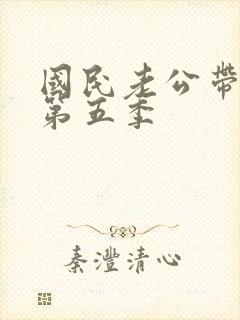 國民老公帶
第五季
秦灃清心